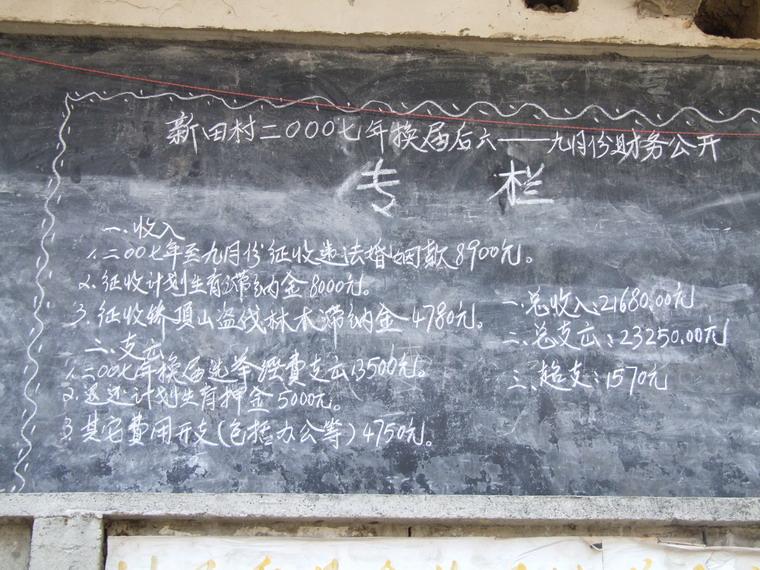 新田村二〇〇〇七年换届后六——九月份财务公开
专栏
一.收入
1.二〇〇七年至九月份征收违法婚姻款8900元。
2.征收计划生育滞纳金8000元。
3.征收轿顶山盗伐林木滞纳金4780元。
二.支出
1.二〇〇七年换届选举经费支出13500元。
2.退还计划生育押金5000元。
3.其它费用开支(包括办公等)4750元。
一.总收入:21680.00元
二.总支出:23250.00元
三.超支:1570元